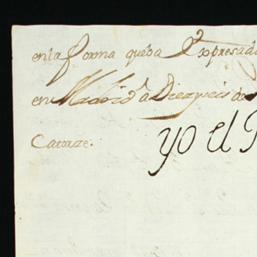 en la forma que va Expresado
en Madrid a Diez y seis de
Catorze.
yo el R